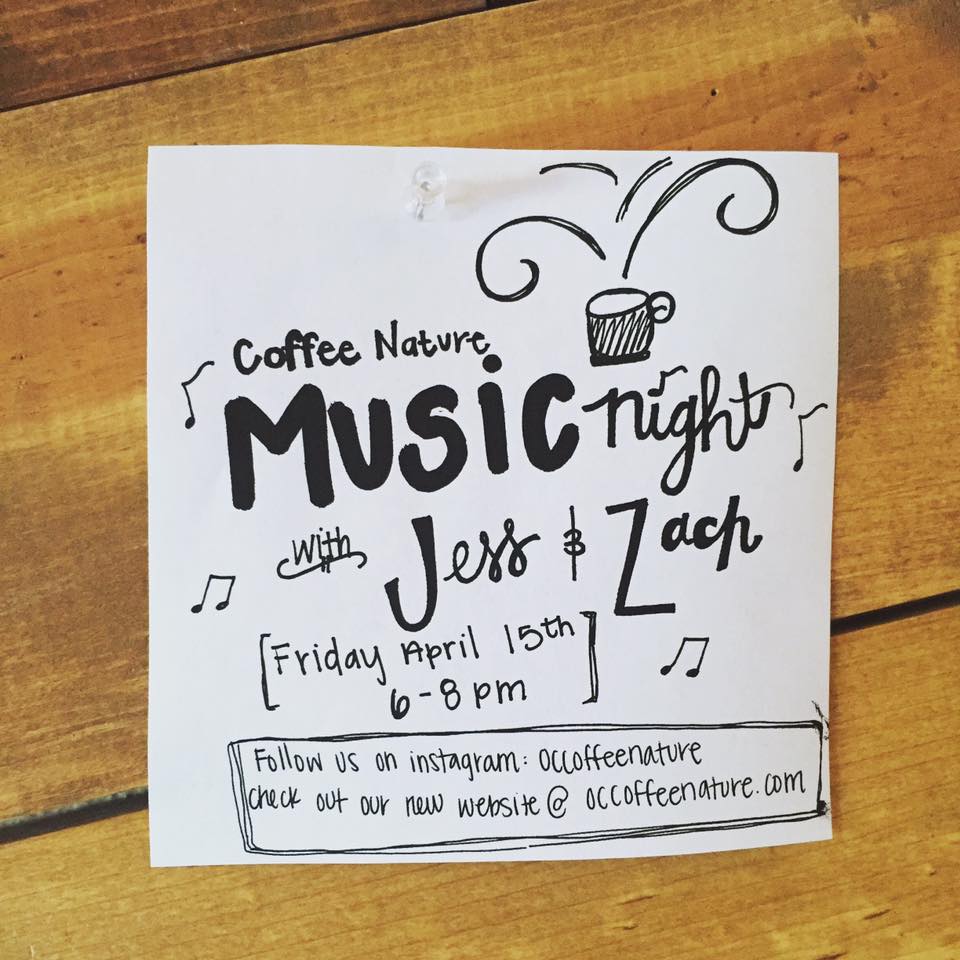 Coffee Nature
Music night
with Jess & Zach
[Friday April 15th
6-8 pm]
Follow us on instagram: occoffeenature
check out our new website @ occoffeenature.com